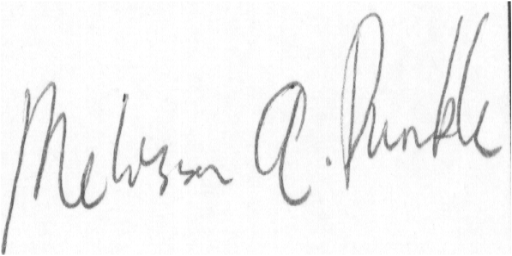 Melissa A. Runkle